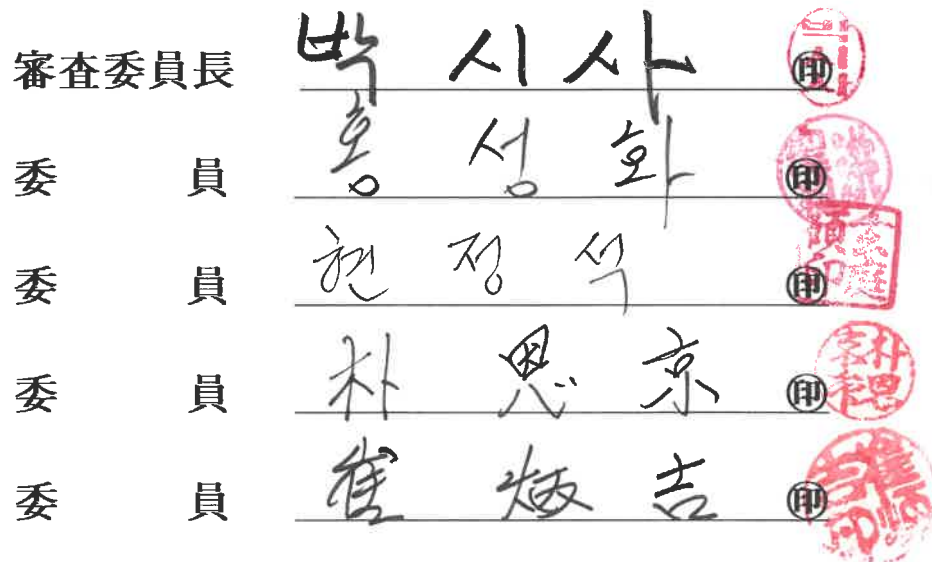 審査委員長 박시사 ㊞
委員 홍성화 ㊞
委員 현정석 ㊞
委員 朴恩京 ㊞
委員 崔炳吉 ㊞